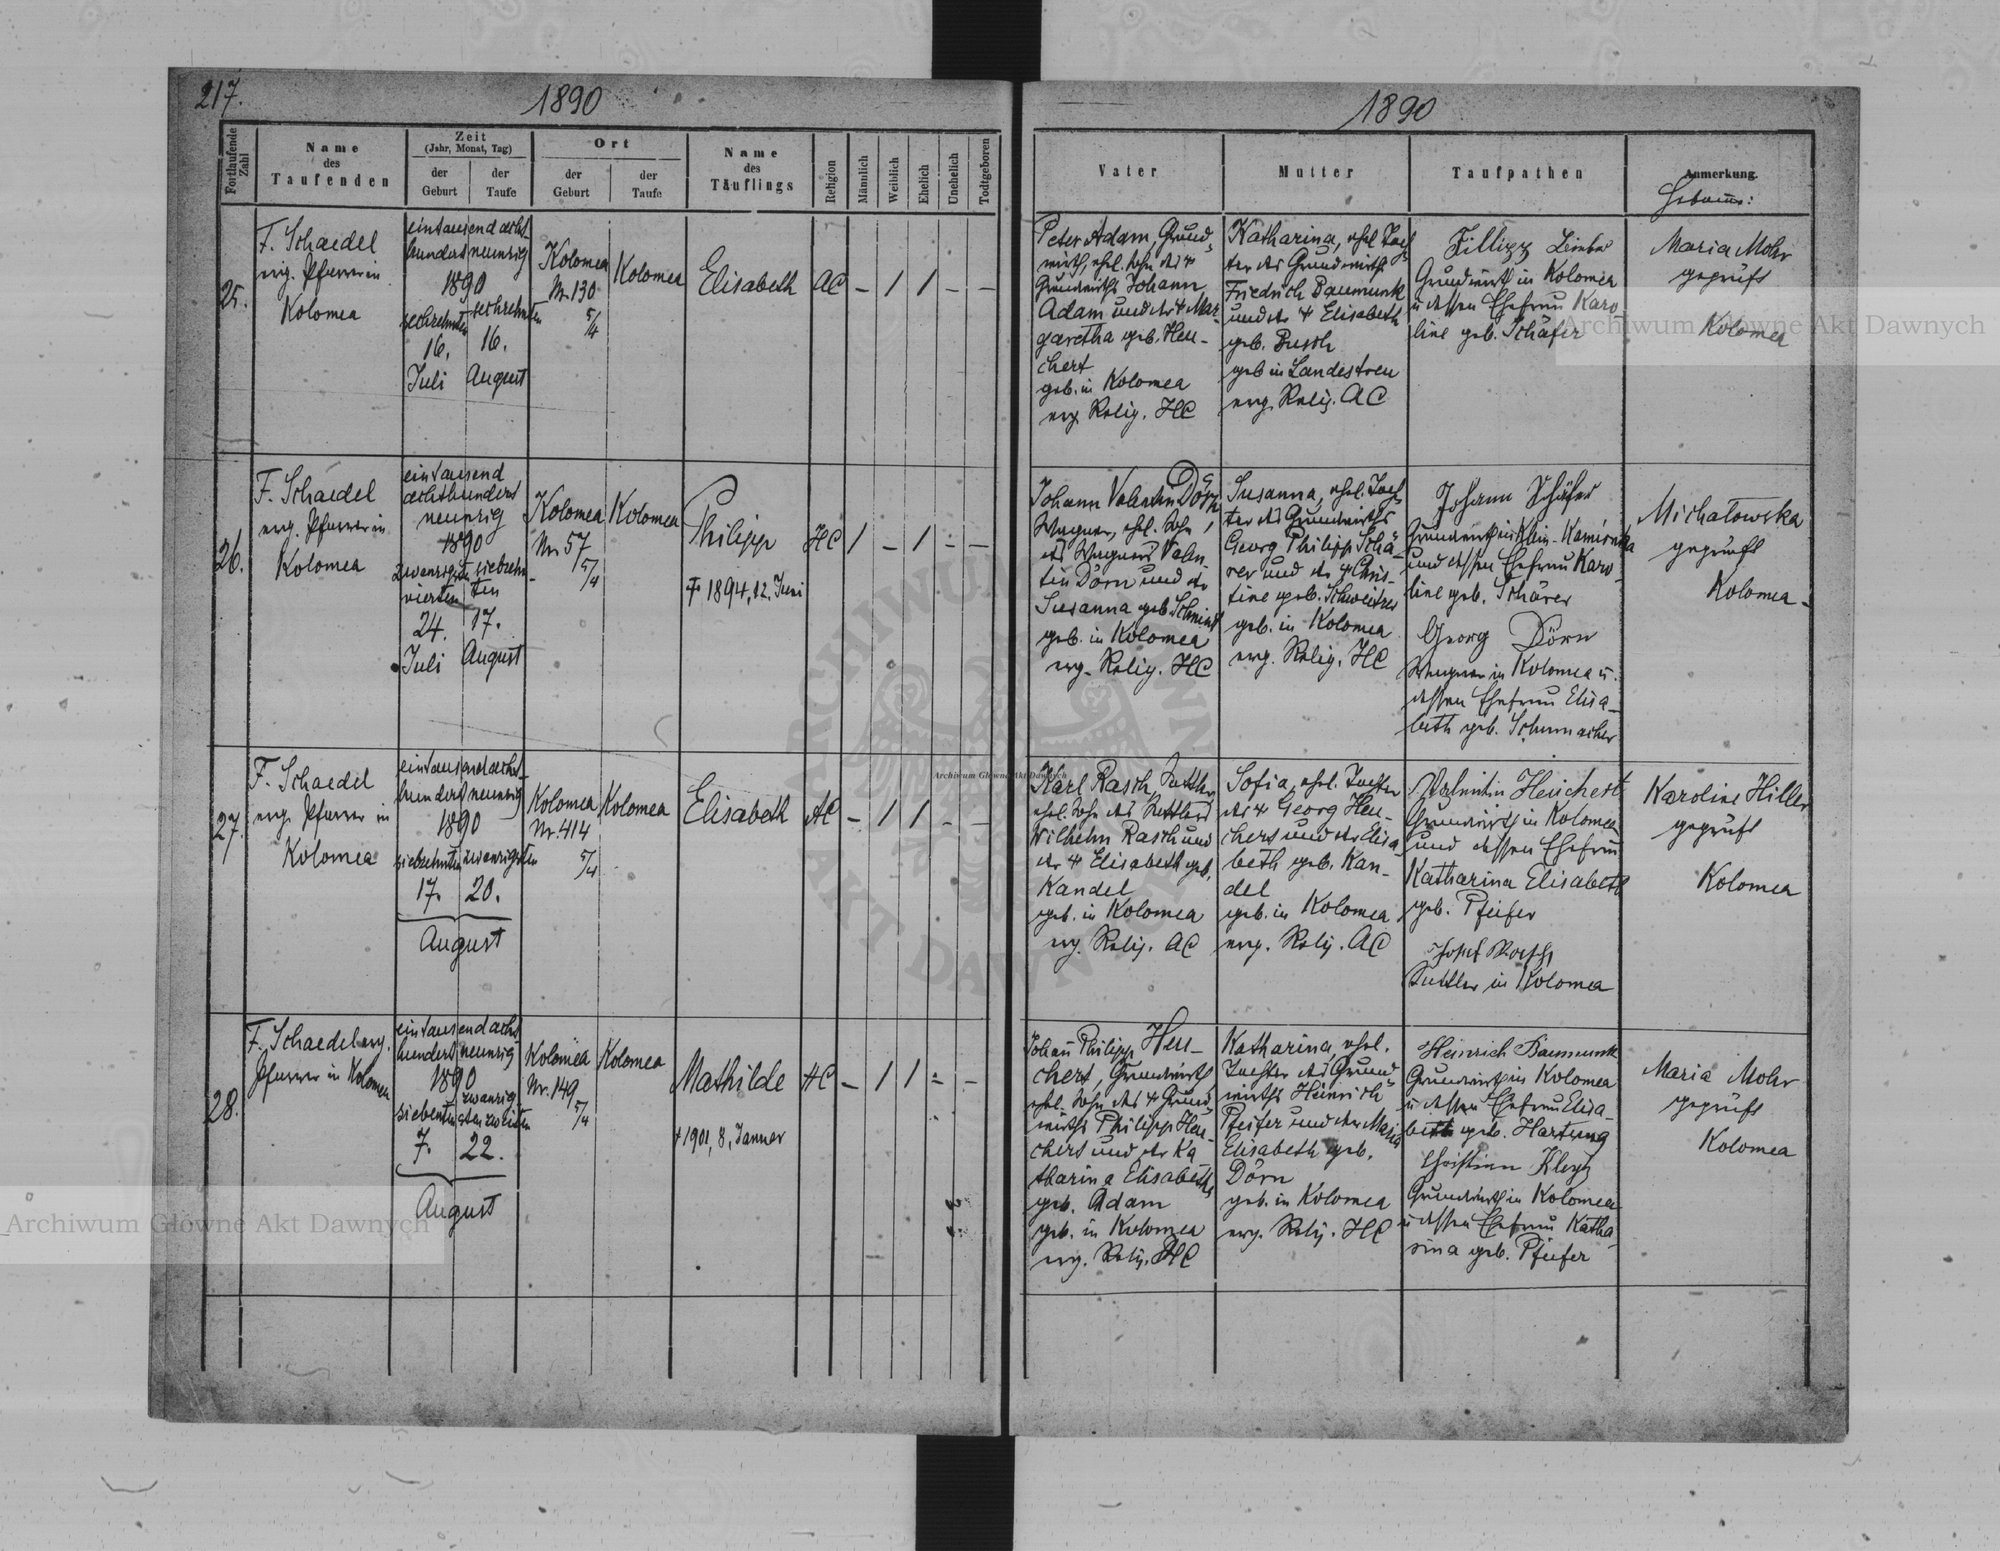 217.
1890
Fortlaufende Zahl
Name
des
Taufenden
Zeit
(Jahr, Monat, Tag)
der Geburt
der Taufe
Ort
der Geburt
der Taufe
Name
des
Täuflings
Religion
Männlich
Weiblich
Ehelich
Unehelich
Todtgeboren
25.
F. Schaedel
evg. Pfarrer in
Kolomea
eintausend acht-
hundert neunzig
1890
sechzehnten
16.
Juli
sechzehnten
16.
August
Kolomea
Nr. 130
5/4
Kolomea
Elisabeth
AC
– / / – –
26.
F. Schaedel
evg. Pfarrer in
Kolomea
eintausend
achthundert
neunzig
1890
zwanzigsten
vierten
24.
Juli
siebzehn-
ten
17.
August
Kolomea
Nr. 57
5/4
Kolomea
Philipp
† 1894, 12. Juni
HC
/ – / – –
27.
F. Schaedel
evg. Pfarrer in
Kolomea
eintausend acht-
hundert neunzig
1890
siebzehnten zwanzigsten
17. 20.
August
Kolomea
Nr. 414
5/4
Kolomea
Elisabeth
AC
– / / – –
28.
F. Schaedel evg.
Pfarrer in Kolomea
eintausend acht-
hundert neunzig
1890
siebenten
7.
zwanzig-
sten zweiten
22.
August
Kolomea
Nr. 149
5/4
Kolomea
Mathilde
† 1901, 8. Januer
HC
– / / – –
1890
Vater
Mutter
Taufpathen
Anmerkung.
Hebamme:
Peter Adam, Grund-
wirth, ehel. Sohn des †
Grundwirths Johann
Adam und der † Mar-
garetha geb. Heu-
chert
geb. in Kolomea
evg. Relig. HC
Katharina, ehel. Toch-
ter des Grundwirths
Friedrich Baumunk
und der † Elisabeth
geb. Busch
geb. in Landestreu
evg. Relig. AC
Fillipp
Grundwirth in Kolomea
u. dessen Ehefrau Karo-
line geb. Schäfer
Maria Mohr
geprüft
Kolomea
Johann Valentin Dörn
Wagner, ehel. Sohn
des Wagners Valen-
tin Dörn und der
Susanna geb. Schmidt
geb. in Kolomea
evg. Relig. HC
Susanna, ehel. Toch-
ter des Grundwirths
Georg Philipp Schä-
rer und der † Chris-
tine geb. Schweitzer
geb. in Kolomea
evg. Relig. HC
Johann Schäfer
Grundwirth in Klein-Kamionka
und dessen Ehefrau Karo-
line geb. Schärer
Georg Dörn
Wagner in Kolomea u.
dessen Ehefrau Elisa-
beth geb. Schumacher
Michatowska
geprüft
Kolomea
Karl Rasch, Sattler
ehel. Sohn des Sattlers
Wilhelm Rasch und
der † Elisabeth geb.
Kandel
geb. in Kolomea
evg. Relig. AC
Sofia, ehel. Tochter
des † Georg Heu-
chert und der Elisa-
beth geb. Kan-
del
geb. in Kolomea
evg. Relig. AC
Valentin Heuchert
Grundwirth in Kolomea
und dessen Ehefrau
Katharina Elisabeth
geb. Pfeifer
Josef Rasch,
Sattler in Kolomea
Karoline Hiller
geprüft
Kolomea
Johann Philipp Heu-
chert, Grundwirth
ehel. Sohn des † Grund-
wirths Philipp Heu-
chert und der Ka-
tharina Elisabeth
geb. Adam
geb. in Kolomea
evg. Relig. HC
Katharina, ehel.
Tochter des Grund-
wirths Heinrich
Pfeifer und der Maria
Elisabeth geb.
Dörn
geb. in Kolomea
evg. Relig. HC
Heinrich Baumunk
Grundwirth in Kolomea
u. dessen Ehefrau Elisa-
beth geb. Hartung
Christian
Grundwirth in Kolomea
u. dessen Ehefrau Katha-
rina geb. Pfeifer
Maria Mohr
geprüft
Kolomea
Archiwum Główne Akt Dawnych
Archiwum Główne Akt Dawnych
Archiwum Główne Akt Dawnych